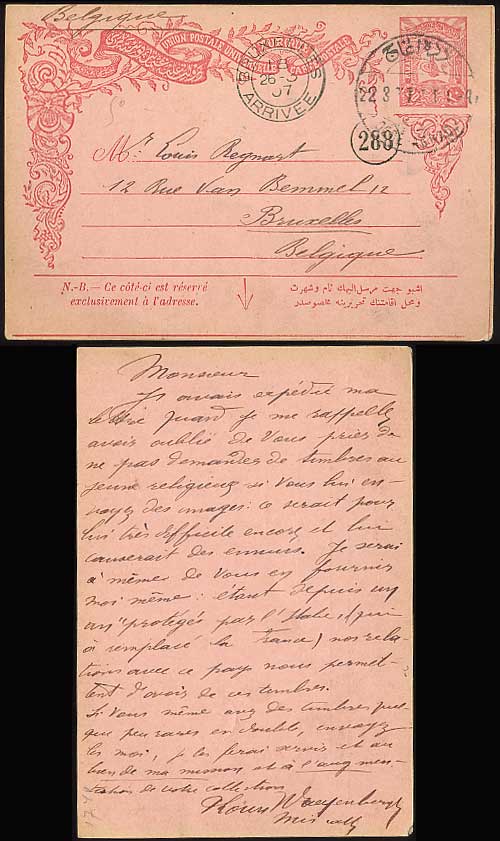 Belgique
UNION POSTALE UNIVERSELLE CARTE POSTALE
BRUXELLES
18
26-3
07
ARRIVÉE
22 3 07
288
Mr Louis Regnart
12 Rue Van Bemmel 12
Bruxelles
Belgique
N.-B.— Ce côté-ci est réservé
exclusivement à l'adresse.
اشبو جهت مرسل اليهك نام و شهرت
و محل اقامتنك تحريرينه مخصوصدر
Monsieur
J'avais expédié ma
lettre quand je me rappelle
avoir oublié de Vous prier de
ne pas demander de timbres au
jeune religieux si Vous lui en-
voyez des images: ce serait pour
lui très difficile encore et lui
causerait des ennuis. Je serai
à même de Vous en fournir
moi même: étant depuis un
an "protégés par l'Italie, (qui
à remplacé la France) nos rela-
tions avec ce pays nous permet-
tent d'avoir de ces timbres.
Si Vous même avez des timbres quel-
que peu rares en double, envoyez-
les moi, je les ferai servir et au
bien de ma mission et à l'aug men-
tation de votre collection